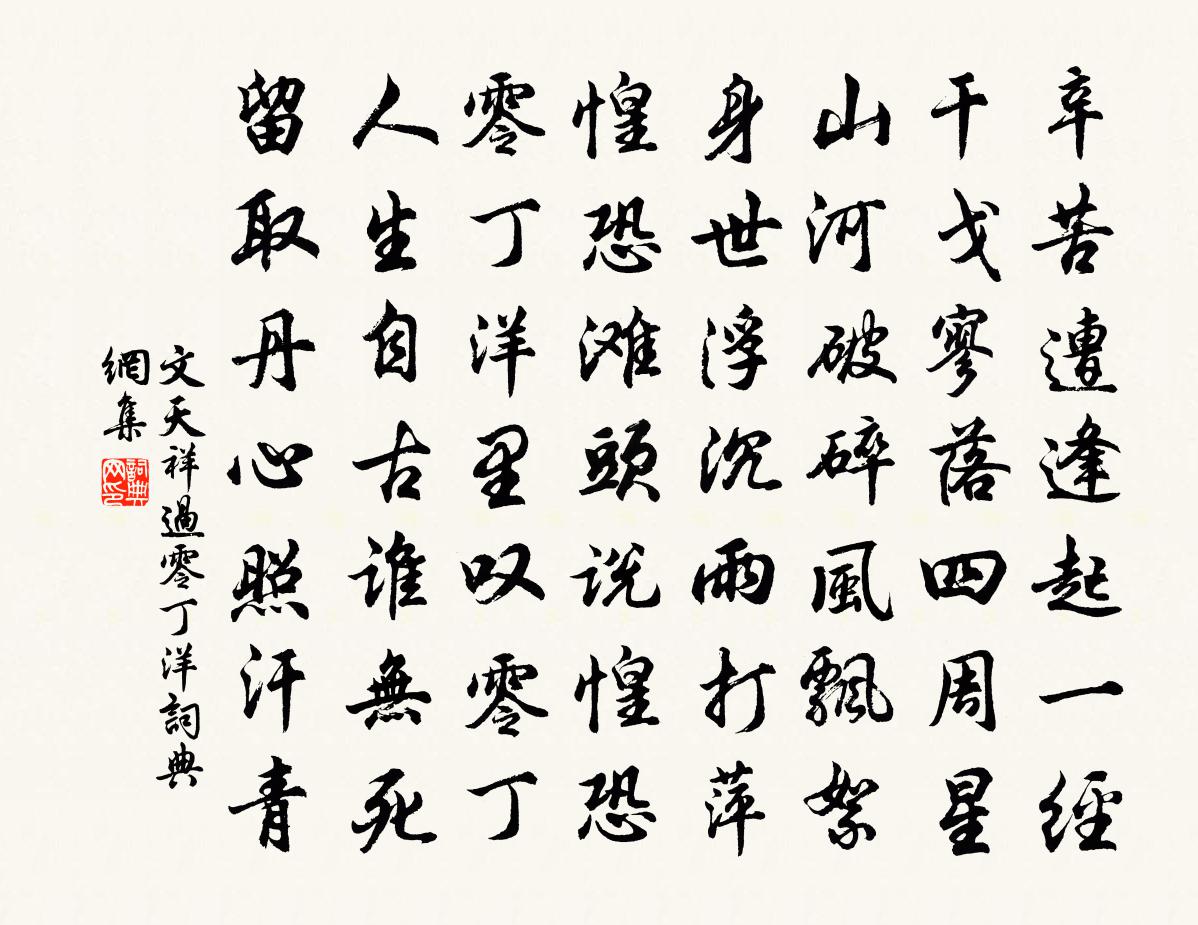 辛苦遭逢起一經
干戈寥落四周星
山河破碎風飄絮
身世浮沉雨打萍
惶恐滩頭说惶恐
零丁洋里叹零丁
人生自古谁無死
留取丹心照汗青
文天祥過零丁洋詞典
網集
詞典
网印